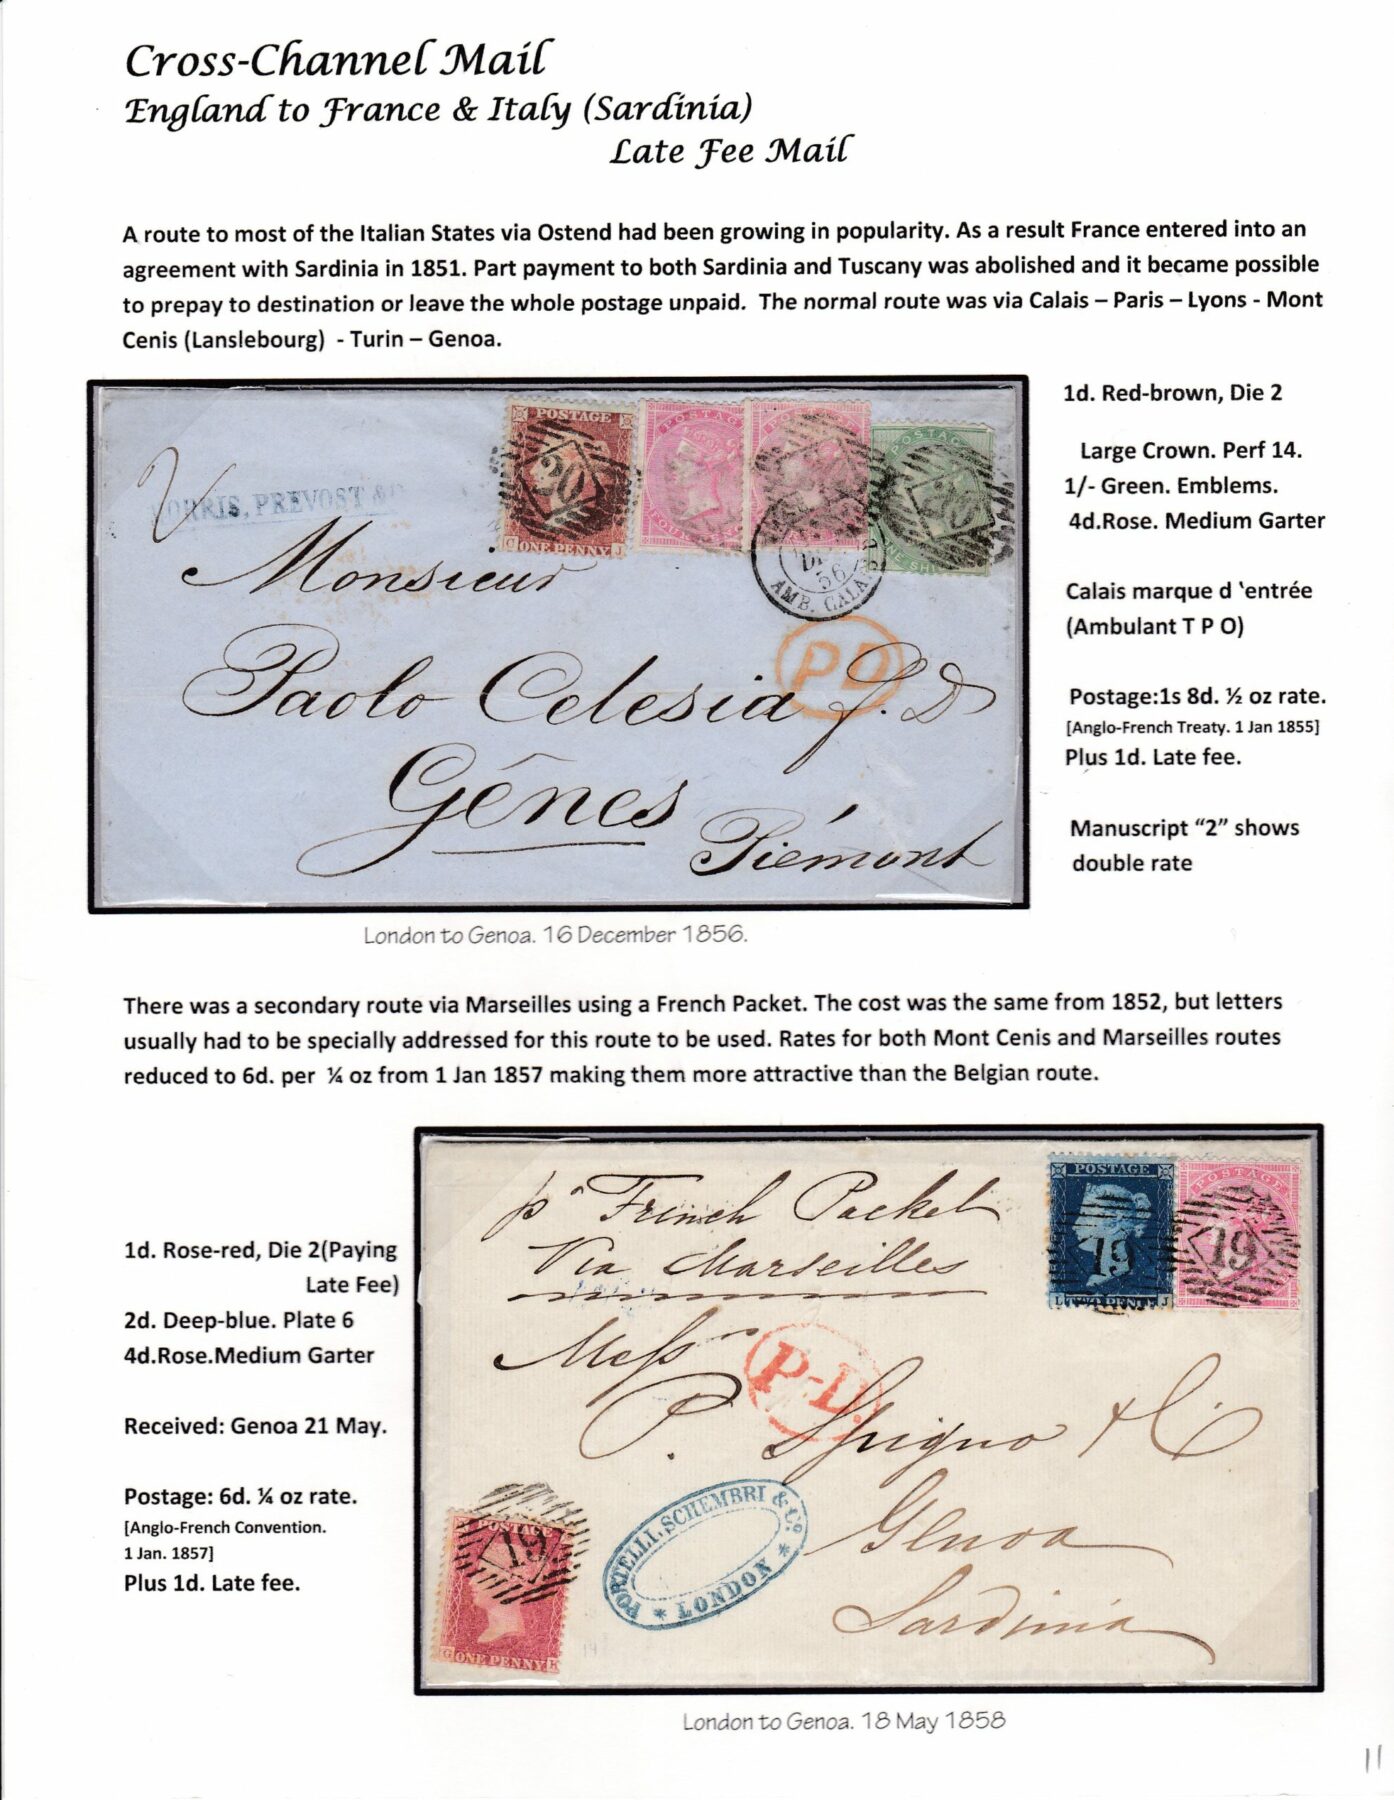 Cross-Channel Mail
England to France & Italy (Sardinia)
Late Fee Mail
A route to most of the Italian States via Ostend had been growing in popularity. As a result France entered into an
agreement with Sardinia in 1851. Part payment to both Sardinia and Tuscany was abolished and it became possible
to prepay to destination or leave the whole postage unpaid. The normal route was via Calais – Paris – Lyons - Mont
Cenis (Lanslebourg) - Turin – Genoa.
2
PREVOST &
POSTAGE
20
C ONE PENNY J
POSTAGE
POSTAGE
POSTAGE
56
AMB. CALA
PD
Monsieur
Paolo Celesia f. D
Gênes
Piémont
1d. Red-brown, Die 2
Large Crown. Perf 14.
1/- Green. Emblems.
4d.Rose. Medium Garter
Calais marque d ‛entrée
(Ambulant T P O)
Postage:1s 8d. ½ oz rate.
[Anglo-French Treaty. 1 Jan 1855]
Plus 1d. Late fee.
Manuscript “2” shows
double rate
London to Genoa. 16 December 1856.
There was a secondary route via Marseilles using a French Packet. The cost was the same from 1852, but letters
usually had to be specially addressed for this route to be used. Rates for both Mont Cenis and Marseilles routes
reduced to 6d. per ¼ oz from 1 Jan 1857 making them more attractive than the Belgian route.
1d. Rose-red, Die 2(Paying
Late Fee)
2d. Deep-blue. Plate 6
4d.Rose.Medium Garter
Received: Genoa 21 May.
Postage: 6d. ¼ oz rate.
[Anglo-French Convention.
1 Jan. 1857]
Plus 1d. Late fee.
pr French Packet
Via Marseilles
POSTAGE
19
L TWO PENCE J
POSTAGE
19
P-D.
Messrs
P. Spigno & Co.
Genoa
Sardinia
PORTELLI, SCHEMBRI & Co.
* LONDON *
POSTAGE
19
G ONE PENNY K
London to Genoa. 18 May 1858
11